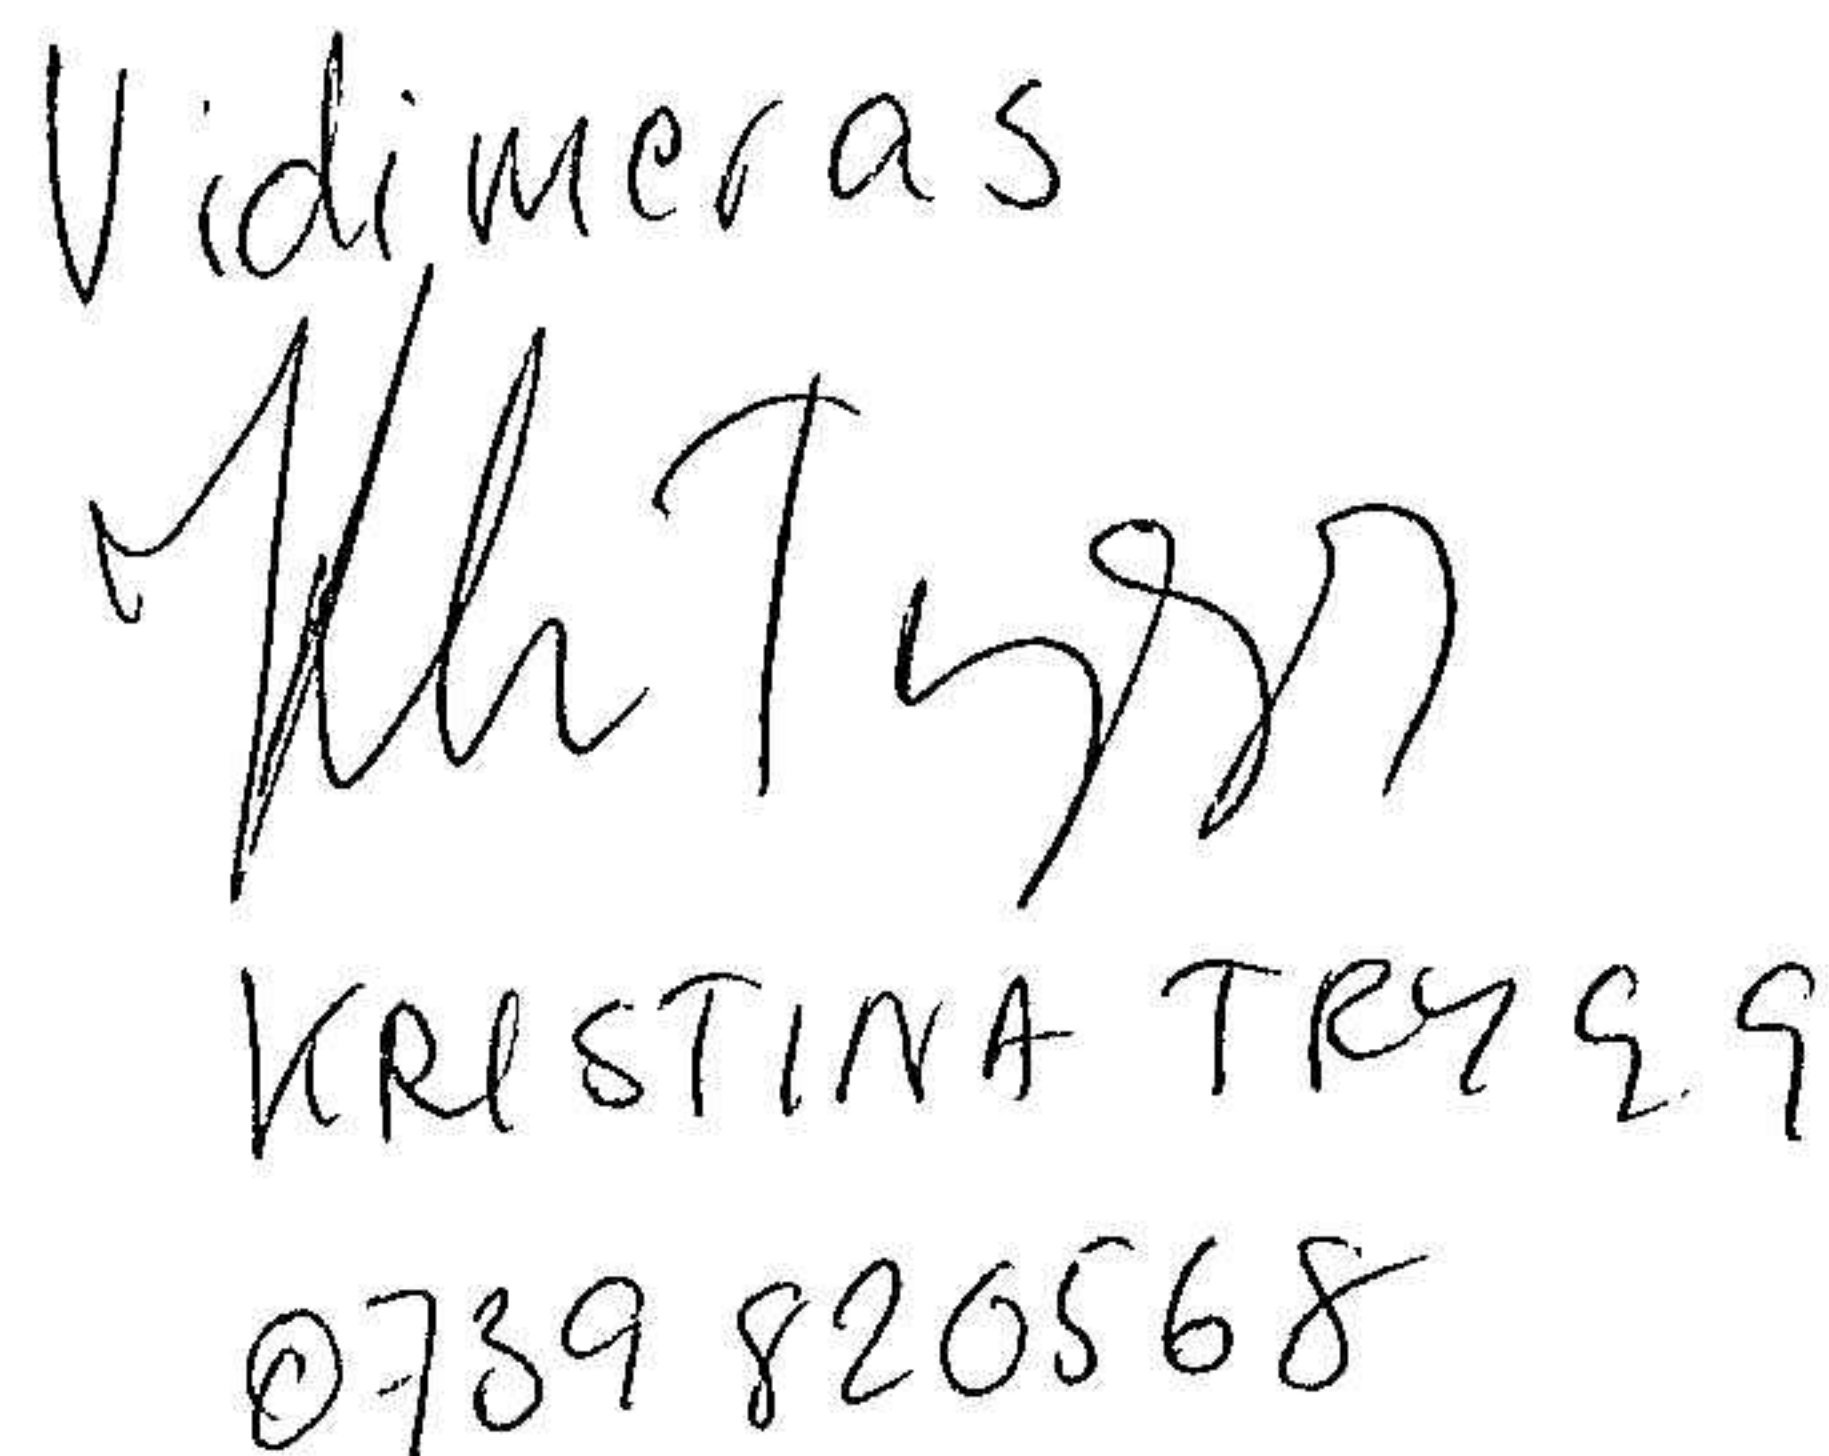 Vidimeras
KRISTINA TRYGG
0739 820568